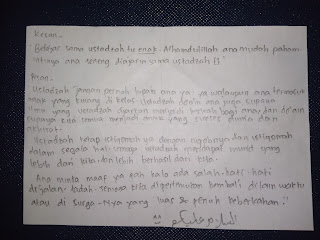 Kesan:
Belajar sama ustadzah tu enak. Alhamdulillah ana mudah paham
intinya ana seneng diajarin sama ustadzah
Pesan:
Ustadzah "jangan pernah lupan ana ya" ya walaupun ana termasuk
anak yang kurang di kelas. Ustadzah do'ain ana juga supaya
ilmu yang ustadzah ajarkan menjadi berkah bagi ana, dan do'ain
supaya kita semua menjadi anak yang sukses dunia dan
akhirat.
Ustadzah tetap istiqomah ya dengan ngajarnya dan istiqomah
dalam segala hal. semoga ustadzah mendapat murid yang
lebih dari kita dan lebih berhasil dari kita.
Ana minta maaf ya zah kalo ada salah-kati-hati
dzah. semoga kita dipertemukan kembali di lain waktu
atau di surga-Nya yang luas & penuh keberkahan."
السلام عليكم